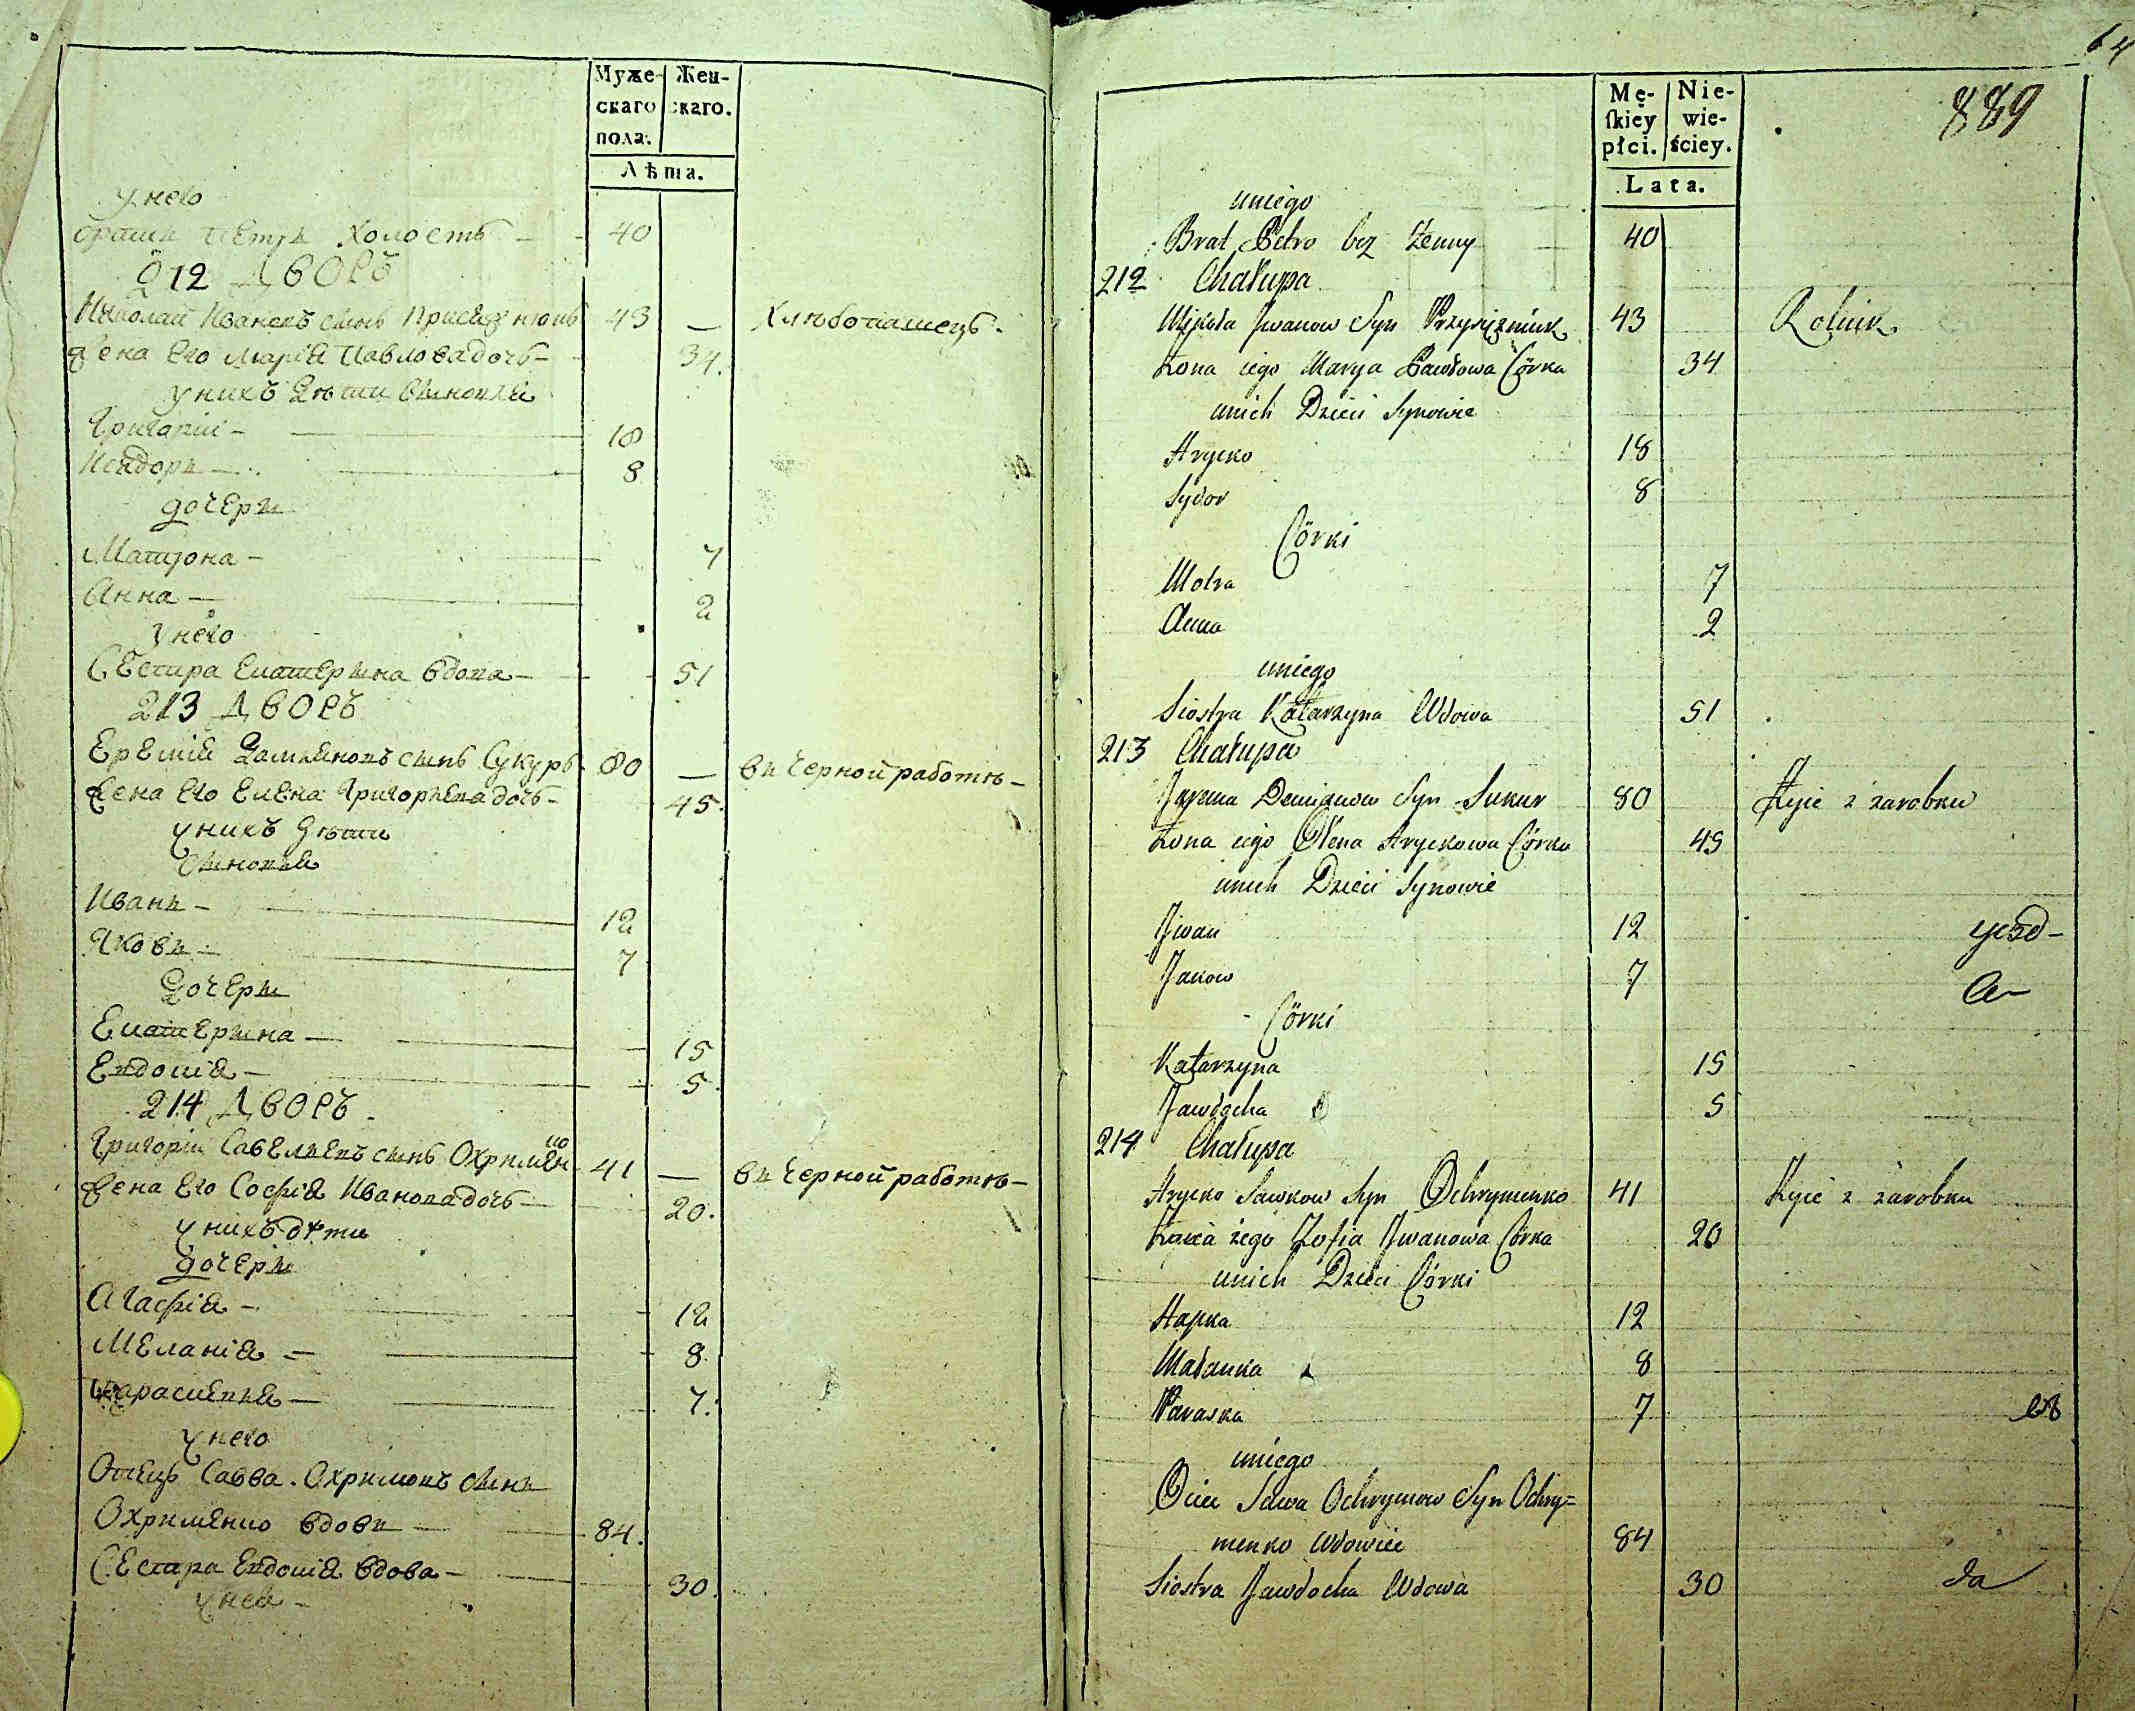 Муже-
скаго
пола.
Жен-
скаго.
Лѣта.
у него
братъ Петръ Холостъ 40
212 Дворъ
Николай Ивановъ сынъ Присяжнюкъ 43 — Хлѣбопашецъ.
Жена его Марія Павлова дочь 34.
у нихъ дѣти сыновья
Григорій — 18
Исидоръ — 8
дочери
Матрона — 7
Анна — 2
у него
Сестра Екатерина вдова — 51
213 Дворъ
Еремій Дамьяновъ сынъ Сукуръ 80 — въ черной работѣ —
Жена его Елена Григорьева дочь — 45.
у нихъ дѣти
сыновья
Иванъ — 12
Яковъ — 7
дочери
Екатерина — 15
Евдокія — 5.
214 Дворъ
Григорій Савельевъ сынъ Охримѣнко 41 — въ черной работѣ —
Жена его Софія Иванова дочь — 20.
у нихъ дѣти
дочери
Агафія — 12
Меланія — 8.
Парасковья — 7.
у него
Отецъ Савва Охримовъ сынъ
Охрименко вдовъ — 84.
Сестра Евдокія вдова — 30.
у нея —
64
889
Mę-
ſkiey
płci.
Nie-
wie-
ściey.
Lata.
uniego
Brat Petro bez Zenny 40
212 Chałupa
Mikoła Jwanow Syn Przysięzniuk 43 Rolnik
Zona iego Marya Pawłowa Córka 34
unich Dzieci Synowie
Hrycko 18
Sydor 8
Córki
Motra 7
Anna 2
uniego
Siostra Katarzyna Wdowa 51
213 Chałupa
Jarema Demianow Syn Sukur 80 Żyie z zarobku
Zona iego Olena Hryckowa Córka 45
unich Dzieci Synowie
Jwan 12
Jakow 7
Córki
Katarzyna 15
Jawdocha 5
214 Chałupa
Hrycko Sawkow Syn Ochrymenko 41 Żyie z zarobku
Zona iego Zofia Jwanowa Córka 20
unich Dzieci Córki
Hapka 12
Małanka 8
Paraska 7
uniego
Ociec Sawa Ochrymow Syn Ochry=
menko Wdowiec 84
Siostra Jawdocha Wdowa 30 да